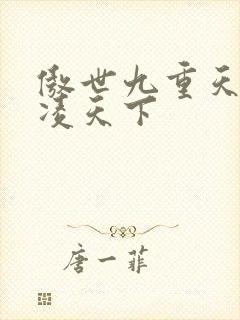 傲世九重天
凌天下
唐一菲